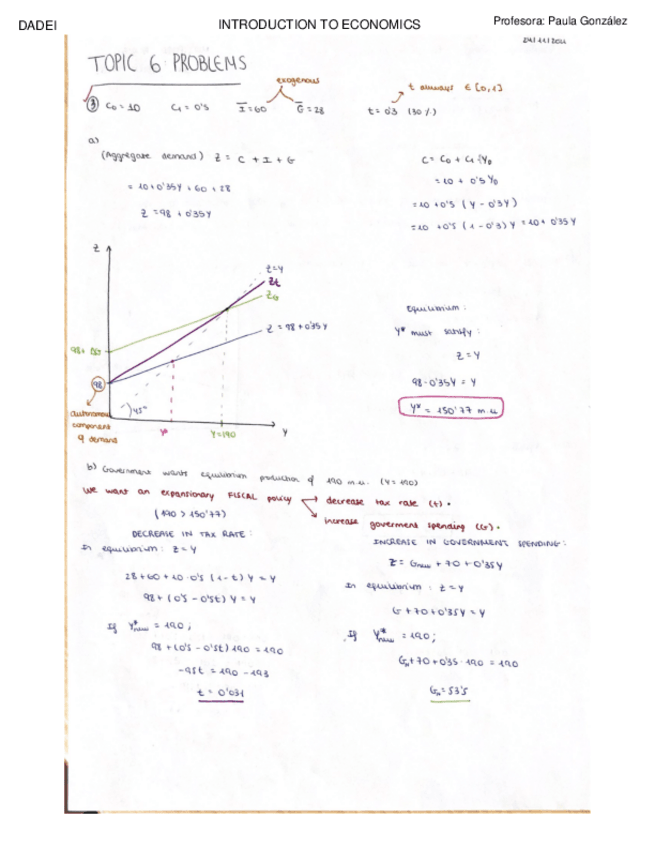 DADEI
INTRODUCTION TO ECONOMICS
Profesora: Paula González
TOPIC 6 PROBLEMS
exogenous
t always ∈ [0,1]
③ C₀ = 10 C₁ = 0'5 I̅ = 60 G̅ = 28 t = 0'3 (30%)
a)
(Aggregate demand) Z = C + I + G
= 10 + 0'35Y + 60 + 28
Z = 98 + 0'35Y
= 10 + 0'5 Y_D
= 10 + 0'5 (Y - 0'3Y)
= 10 + 0'5 (1 - 0'3) Y = 10 + 0'35Y
Z
Z=Y
Zt
Z_G
Z = 98 + 0'35Y
98 + ΔG
98
45°
autonomous
component
demand
Y*
Y=190
Y
Equilibrium:
Y* must satisfy:
Z = Y
98 · 0'35Y = Y
Y* = 150'77 m.u.
b) Government wants equilibrium production of 190 m.u. (Y = 190)
We want an expantionary FISCAL policy
decrease tax rate (t).
increase goverment spending (G).
(190 > 150'77)
DECREASE IN TAX RATE:
In equilibrium: Z = Y
28 + 60 + 10 · 0'5 (1-t) Y = Y
98 + (0'5 - 0'5t) Y = Y
If Y*new = 190;
98 + (0'5 - 0'5t) 190 = 190
-95t = 190 - 193
t = 0'031
INCREASE IN GOVERNMENT SPENDING:
Z = Gnew + 70 + 0'35Y
In equilibrium: Z = Y
G + 70 + 0'35Y = Y
If Y*new = 190;
Gn + 70 + 0'35 · 190 = 190
Gn = 53'5